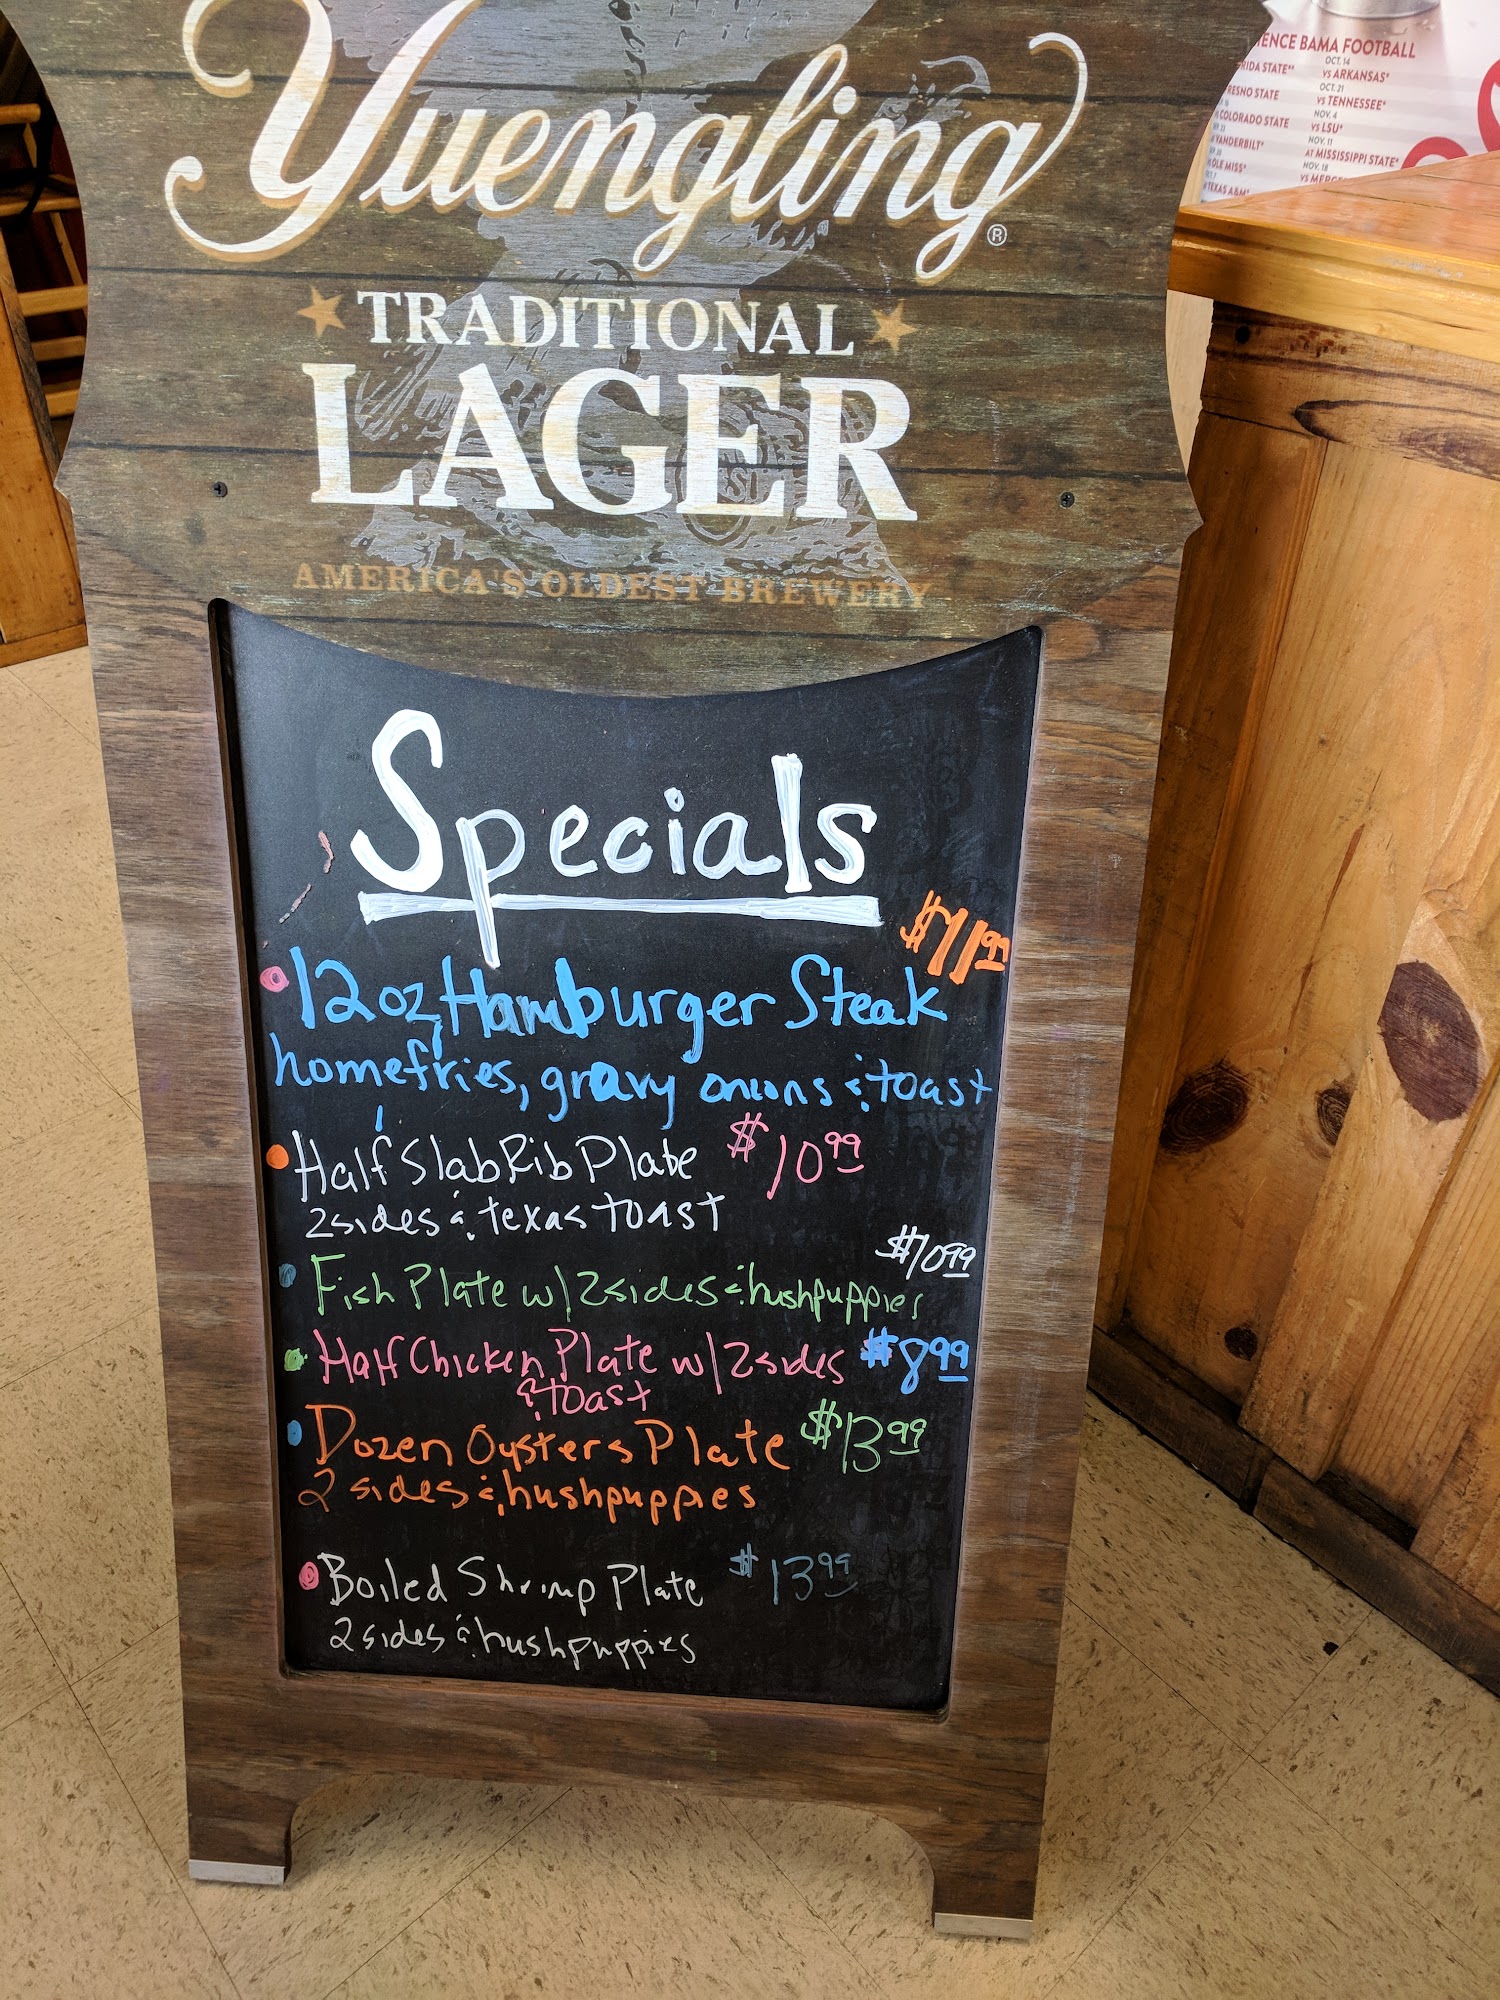 Yuengling®
TRADITIONAL
LAGER
AMERICA'S OLDEST BREWERY
Specials
$11.99
12oz Hamburger Steak
homefries, gravy onions & toast
Half Slab Rib Plate $10.99
2 sides & texas toast
$10.99
Fish Plate w/ 2 sides & hushpuppies
Half Chicken Plate w/ 2 sides $8.99
& toast
Dozen Oysters Plate $13.99
2 sides & hushpuppies
Boiled Shrimp Plate $13.99
2 sides & hushpuppies
BAMA FOOTBALL
STATE**
COLORADO STATE
VANDERBILT*
OLE MISS*
TEXAS A&M*
OCT. 14
VS ARKANSAS*
OCT. 21
VS TENNESSEE*
NOV. 4
VS LSU*
NOV. 11
AT MISSISSIPPI STATE*
NOV. 18
VS